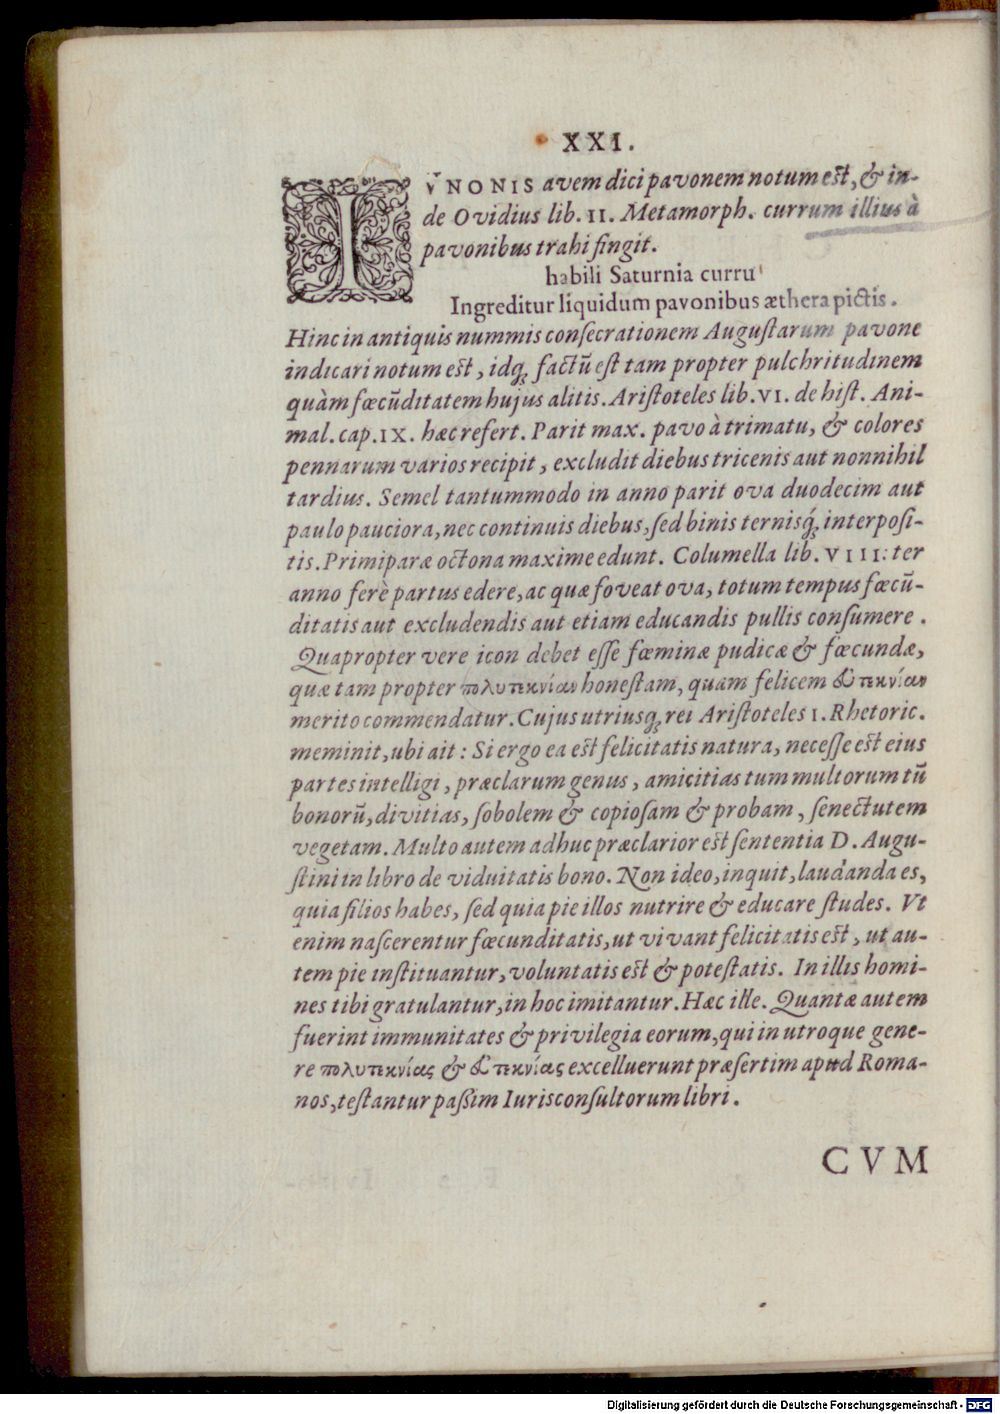 XXI.
IVNONIS avem dici pavonem notum est, & in-
de Ovidius lib. II. Metamorph. currum illius à
pavonibus trahi fingit.
habili Saturnia curru
Ingreditur liquidum pavonibus æthera pictis.
Hinc in antiquis nummis consecrationem Augustarum pavone
indicari notum est, idq; factū est tam propter pulchritudinem
quàm fœcūditatem hujus alitis. Aristoteles lib. VI. de hist. Ani-
mal. cap. IX. hæc refert. Parit max. pavo à trimatu, & colores
pennarum varios recipit, excludit diebus tricenis aut nonnihil
tardius. Semel tantummodo in anno parit ova duodecim aut
paulo pauciora, nec continuis diebus, sed binis ternisq́; interposi-
tis. Primiparæ octona maxime edunt. Columella lib. VIII: ter
anno ferè partus edere, ac quæ foveat ova, totum tempus fœcū-
ditatis aut excludendis aut etiam educandis pullis consumere.
Quapropter vere icon debet esse fœminæ pudicæ & fœcundæ,
quæ tam propter πολυτεκνίαν honestam, quam felicem εὐτεκνίαν
merito commendatur. Cujus utriusq; rei Aristoteles I. Rhetoric.
meminit, ubi ait: Si ergo ea est felicitatis natura, necesse est eius
partes intelligi, præclarum genus, amicitias tum multorum tū
bonorū, divitias, sobolem & copiosam & probam, senectutem
vegetam. Multo autem adhuc præclarior est sententia D. Augu-
stini in libro de viduitatis bono. Non ideo, inquit, laudanda es,
quia filios habes, sed quia pie illos nutrire & educare studes. Vt
enim nascerentur fœcunditatis, ut vivant felicitatis est, ut au-
tem pie instituantur, voluntatis est & potestatis. In illis homi-
nes tibi gratulantur, in hoc imitantur. Hæc ille. Quantæ autem
fuerint immunitates & privilegia eorum, qui in utroque gene-
re πολυτεκνίας & εὐτεκνίας excelluerunt præsertim apud Roma-
nos, testantur passim Iurisconsultorum libri.
CVM
Digitalisierung gefördert durch die Deutsche Forschungsgemeinschaft - DFG